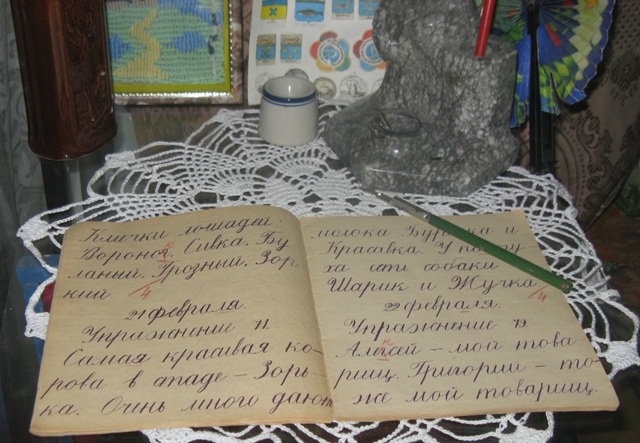 Клички лошадей:
Вороной. Сивка. Бу
ланый. Грозный. Зор
кий 4
21 февраля.
Упражнение 71.
Самая красивая ко-
рова в стаде – Зорь-
ка. Очень много дают
молока Буренка и
Красавка. У пастуха
ха сти собаки
Шарик и Жучка
4
22 февраля.
Упражнение 73.
Алексей – мой това-
рищ. Григорий – то-
же мой товарищ.